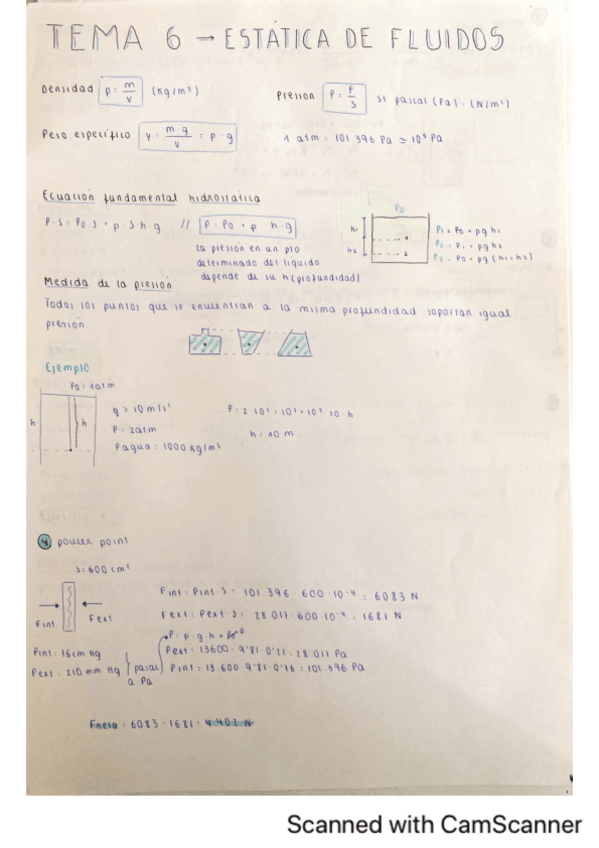 TEMA 6 → ESTÁTICA DE FLUIDOS
Densidad ρ = m/v (kg/m³) Presion P = F/S SI pascal (Pa) = (N/m²)
Peso específico γ = m·g/v = ρ·g 1 atm = 101 396 Pa ≃ 10⁵ Pa
Ecuación fundamental hidrostática
P·S = P₀ S + ρ·S h·g // P = P₀ + ρ·h·g
P₀
h₁
h₂
1
2
P₁ = P₀ + ρg h₁
P₂ = P₁ + ρg h₂
P₂ = P₀ + ρg (h₁+h₂)
la presión en un pto
determinado del líquido
depende de su h (profundidad)
Medida de la presion
Todos los puntos que se encuentran a la misma profundidad soportan igual
presion.
Ejemplo
P₀ = 1 atm
h
h
g = 10 m/s² P = 2·10⁵ = 10⁵ + 10³·10·h
P = 2 atm h = 10 m.
ρ agua = 1000 kg/m³
4 power point
S = 600 cm²
Fint
Fext
Fint = Pint·S = 101 396 · 600·10⁻⁴ = 6083 N
Fext = Pext·S = 28 017 · 600·10⁻⁴ = 1681 N
P = ρ·g·h
Pint = 76 cm Hg
Pext = 210 mm Hg
pasar
a Pa
Pext = 13600 · 9'81 · 0'21 = 28 017 Pa
Pint = 13.600 · 9'81 · 0'76 = 101 396 Pa
Fneta = 6083 - 1681 = 4 402 N
Scanned with CamScanner